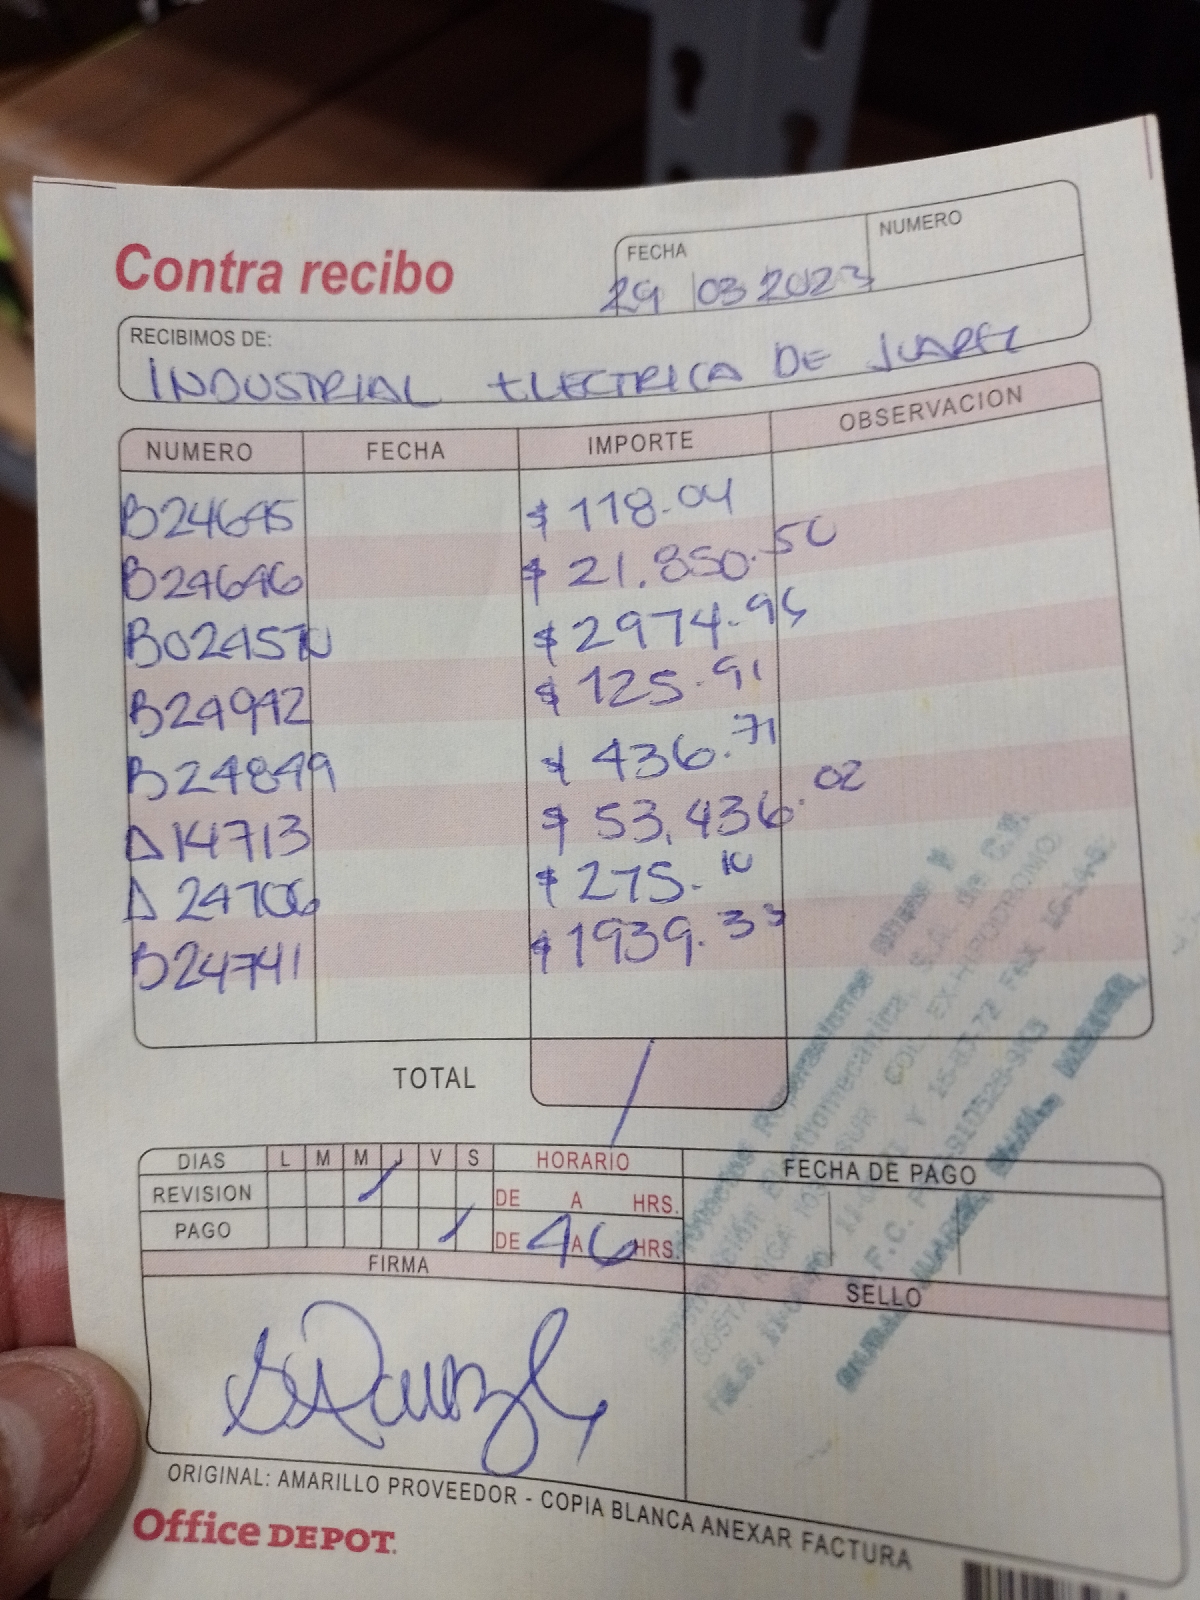 Contra recibo
FECHA
NUMERO
29 03 2023
RECIBIMOS DE:
INDUSTRIAL ELECTRICA DE JUAREZ
NUMERO FECHA IMPORTE OBSERVACION
B24695 $ 118.04
B24696 $ 21.850.50
$ 2974.95
B24942 $ 125.91
B24849 $ 436.71
A14713 $ 53,436.02
A 24706 $ 275.10
B24741 $ 1939.33
TOTAL
DIAS L M M J V S HORARIO FECHA DE PAGO
REVISION DE A HRS.
PAGO DE 4 A 6 HRS.
FIRMA SELLO
ORIGINAL: AMARILLO PROVEEDOR - COPIA BLANCA ANEXAR FACTURA
Office DEPOT.